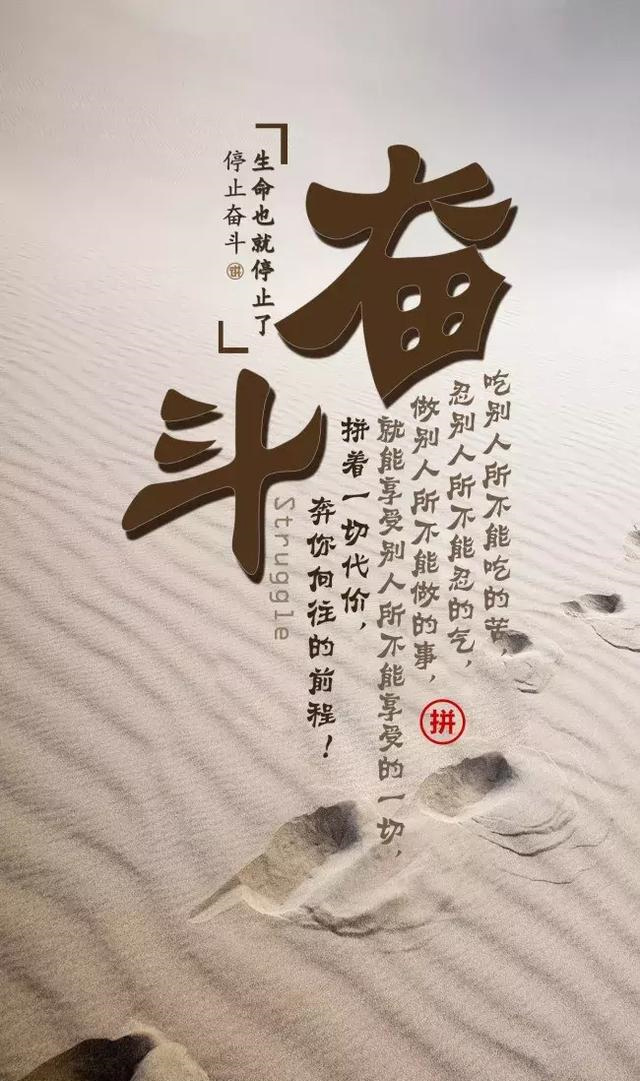 奋斗
停止奋斗
拼
生命也就停止了
吃别人所不能吃的苦，
忍别人所不能忍的气，
做别人所不能做的事，
拼
就能享受别人所不能享受的一切，
拼着一切代价，
奔你向往的前程！
Struggle